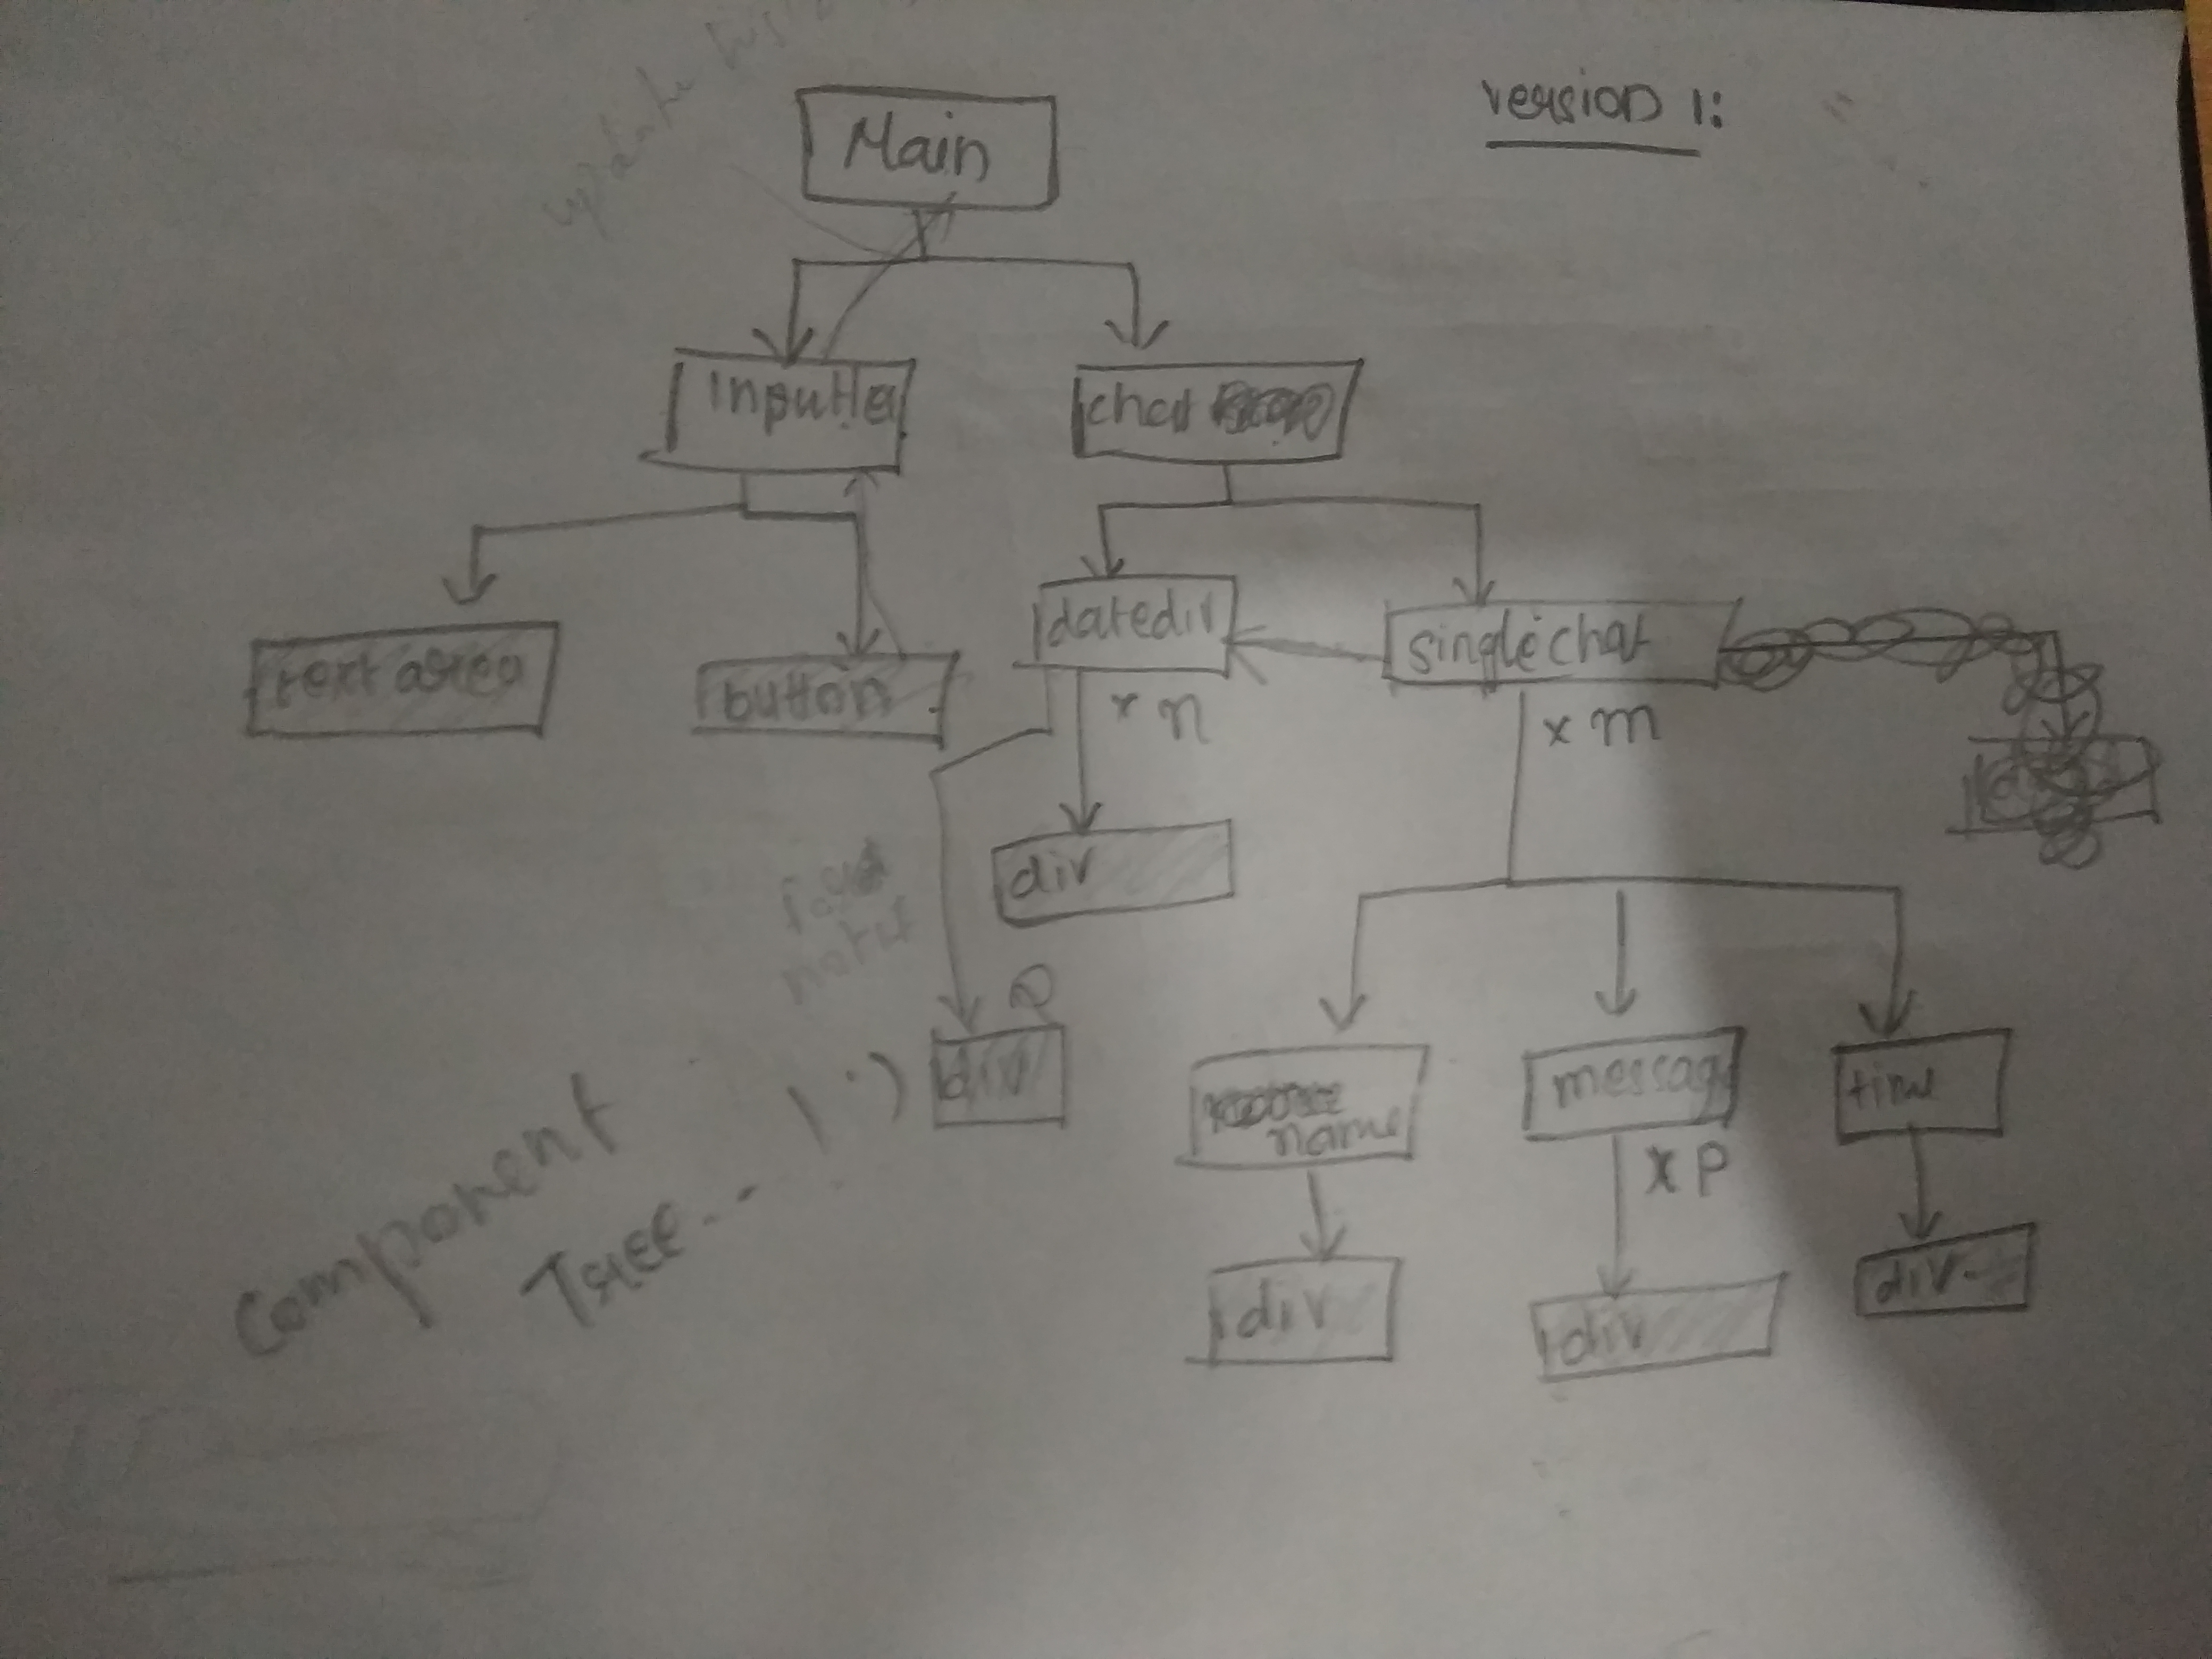 version 1:
Main
chat
text area
button
datediv
singlechat
x n
x m
div
div
name
message
time
x p
div
div
div
Component
Tree...!:)